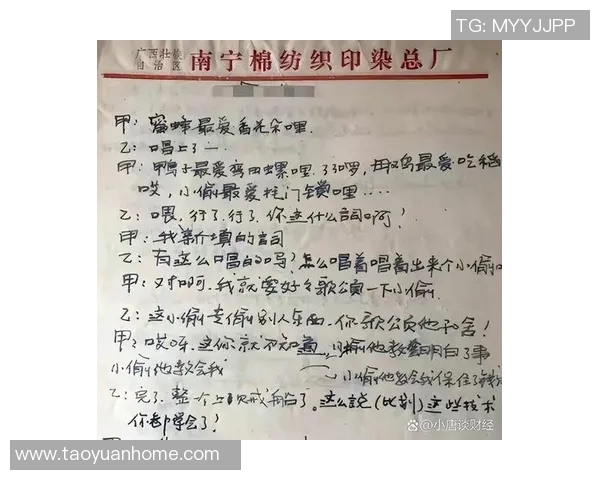 TG: MYYJJPP
广西壮族
自治区
南宁棉纺织印染总厂
甲：蜜蜂最爱香花朵哩.
乙：唱上了一
甲：鸭子最爱弯田螺哩了啰，母鸡最爱吃稻
哎，小偷最爱撬门锁哩….
乙：喂，行了，行了，你这什么词啊！
甲：我新填的词
乙：有这么唱的吗？怎么唱着唱着出来个小偷
甲：对啊，我就要好好歌颂一下小偷.
乙：这小偷专偷别人东西，你歌颂他和舍！
甲：哎呀，这你就不知道，小偷他教会明白了事
小偷他教会我
小偷他教会我保住了钱
乙：完了，整个上贼船了。这么说（比划）这些技术
你都学会了！
@小唐谈财经
www.taoyuanhome.com